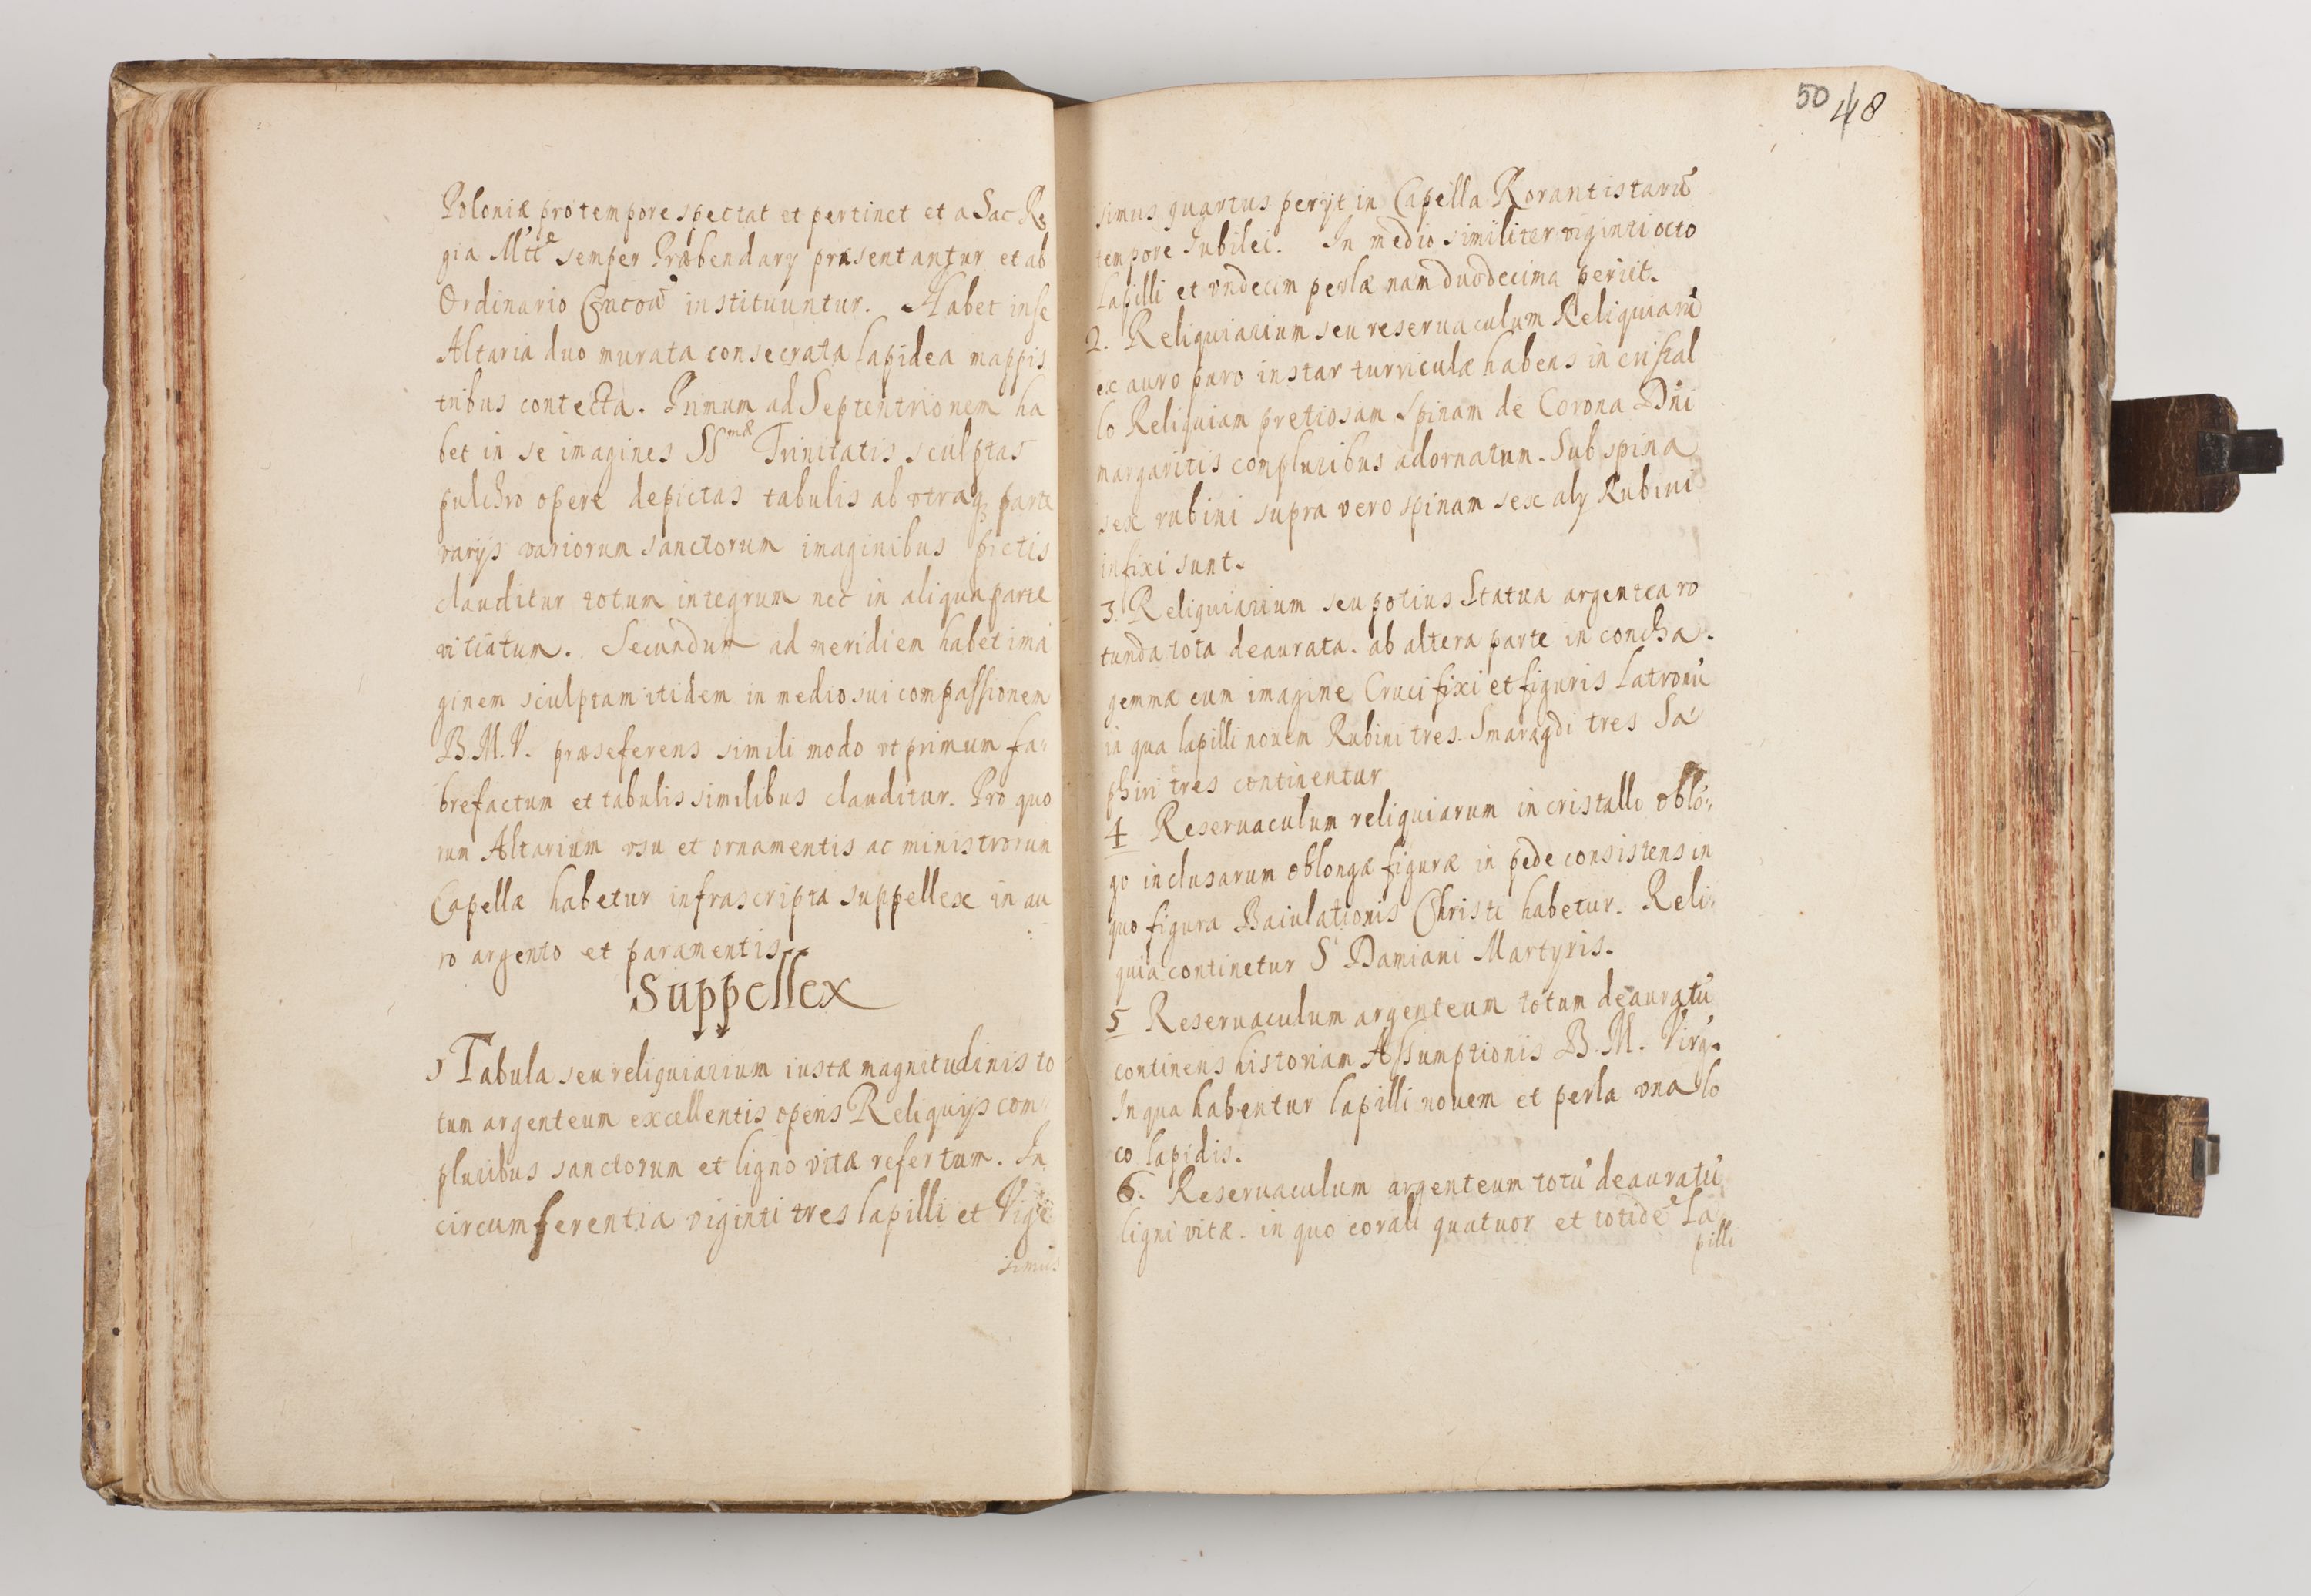 Poloniæ pro tempore spectat et pertinet et a Sac Re
gia Mtte semper Præbendary præsentantur et ab
Ordinario instituuntur. Habet in se
Altaria duo murata consecrata lapidea mappis
tribus contecta. Primum ad Septentrionem ha
bet in se imagines SSmæ Trinitatis sculptas
pulchro opere depictas tabulis ab vtraq; parte
varijs variorum sanctorum imaginibus pictis
clauditur totum integrum nec in aliqua parte
vitiatum. Secundum ad meridiem habet ima
ginem sculptam itidem in medio sui compassionem
B.M.V. præseferens simili modo vt primum fa
brefactum et tabulis similibus clauditur. Pro quo
rum Altarium vsu et ornamentis ac ministrorum
Capellæ habetur infrascripta suppellex in au
ro argento et paramentis.
Suppellex
1 Tabula seu reliquiarium iustæ magnitudinis to
tum argenteum excellentis operis Reliquijs com
pluribus sanctorum et ligno vitæ refertum. In
circumferentia viginti tres lapilli et Vige
simus
50 48
simus quartus perijt in Capella Rorantistarū
tempore Iubilei. In medio similiter viginti octo
Lapilli et vndecim perlæ nam duodecima periit.
2. Reliquiarium seu reseruaculum Reliquiarū
ex auro puro instar turriculæ habens in cristal
lo Reliquiam pretiosam Spinam de Corona Dñi
margaritis compluribus adornatum. Sub spina
sex rubini supra vero spinam sex aly Rubini
infixi sunt.
3. Reliquiarium seu potius Statua argentea ro
tunda tota deaurata. ab altera parte in concha
gemmæ cum imagine Crucifixi et figuris Latronū
in qua lapilli nouem Rubini tres. Smaragdi tres Sa
phiri tres continentur
4 Reseruaculum reliquiarum in cristallo oblō
go inclusarum oblongæ figuræ in pede consistens in
quo figura Baiulationis Christi habetur. Reli
quia continetur S Damiani Martyris.
5 Reseruaculum argenteum totum deauratū
continens historiam Assumptionis B.M. Virg.
In qua habentur lapilli nouem et perla vna lo
co lapidis.
6. Reseruaculum argenteum totū deauratū
ligni vitæ. in quo corali quatuor et totidē La
pilli